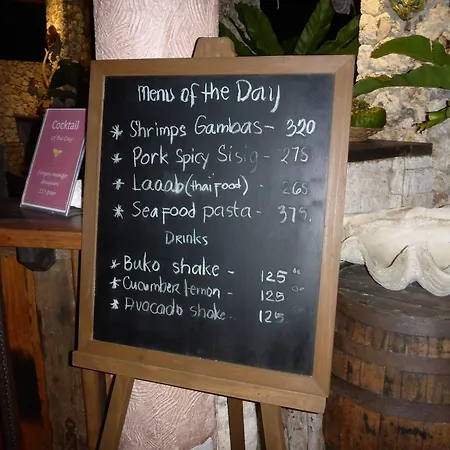 Cocktail
of the Day
Menu of the Day
* Shrimps Gambas - 320
* Pork Spicy Sisig - 275
* Laaab (thai food) - 265
* Seafood pasta - 375.
Drinks
* Buko shake - 125
* Cucumber lemon - 125
* Avocado shake - 125